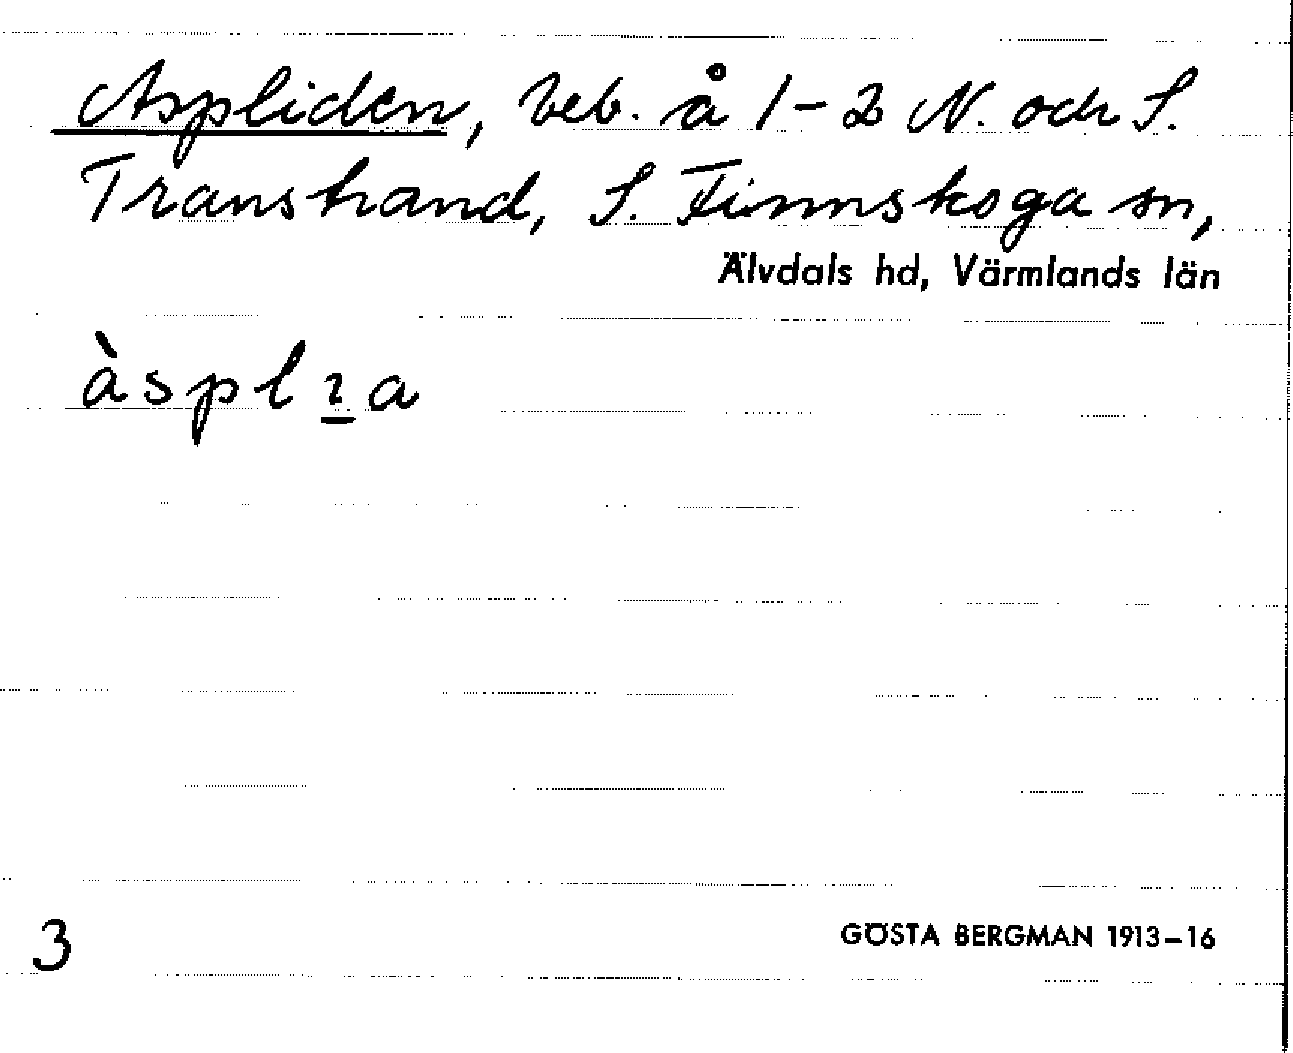 Aspliden, beb. å 1-2 N. och S.
Transtrand, S. Finnskoga sn,
Älvdals hd, Värmlands län
àsplıa
3
GÖSTA BERGMAN 1913-16